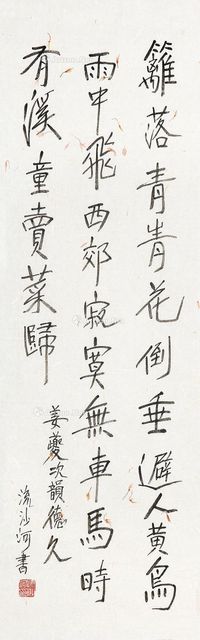 籬落青青花倒垂避人黃鳥
雨中飛西郊寂寞無車馬時
有溪童賣菜歸
姜夔次韻德久
流沙河書